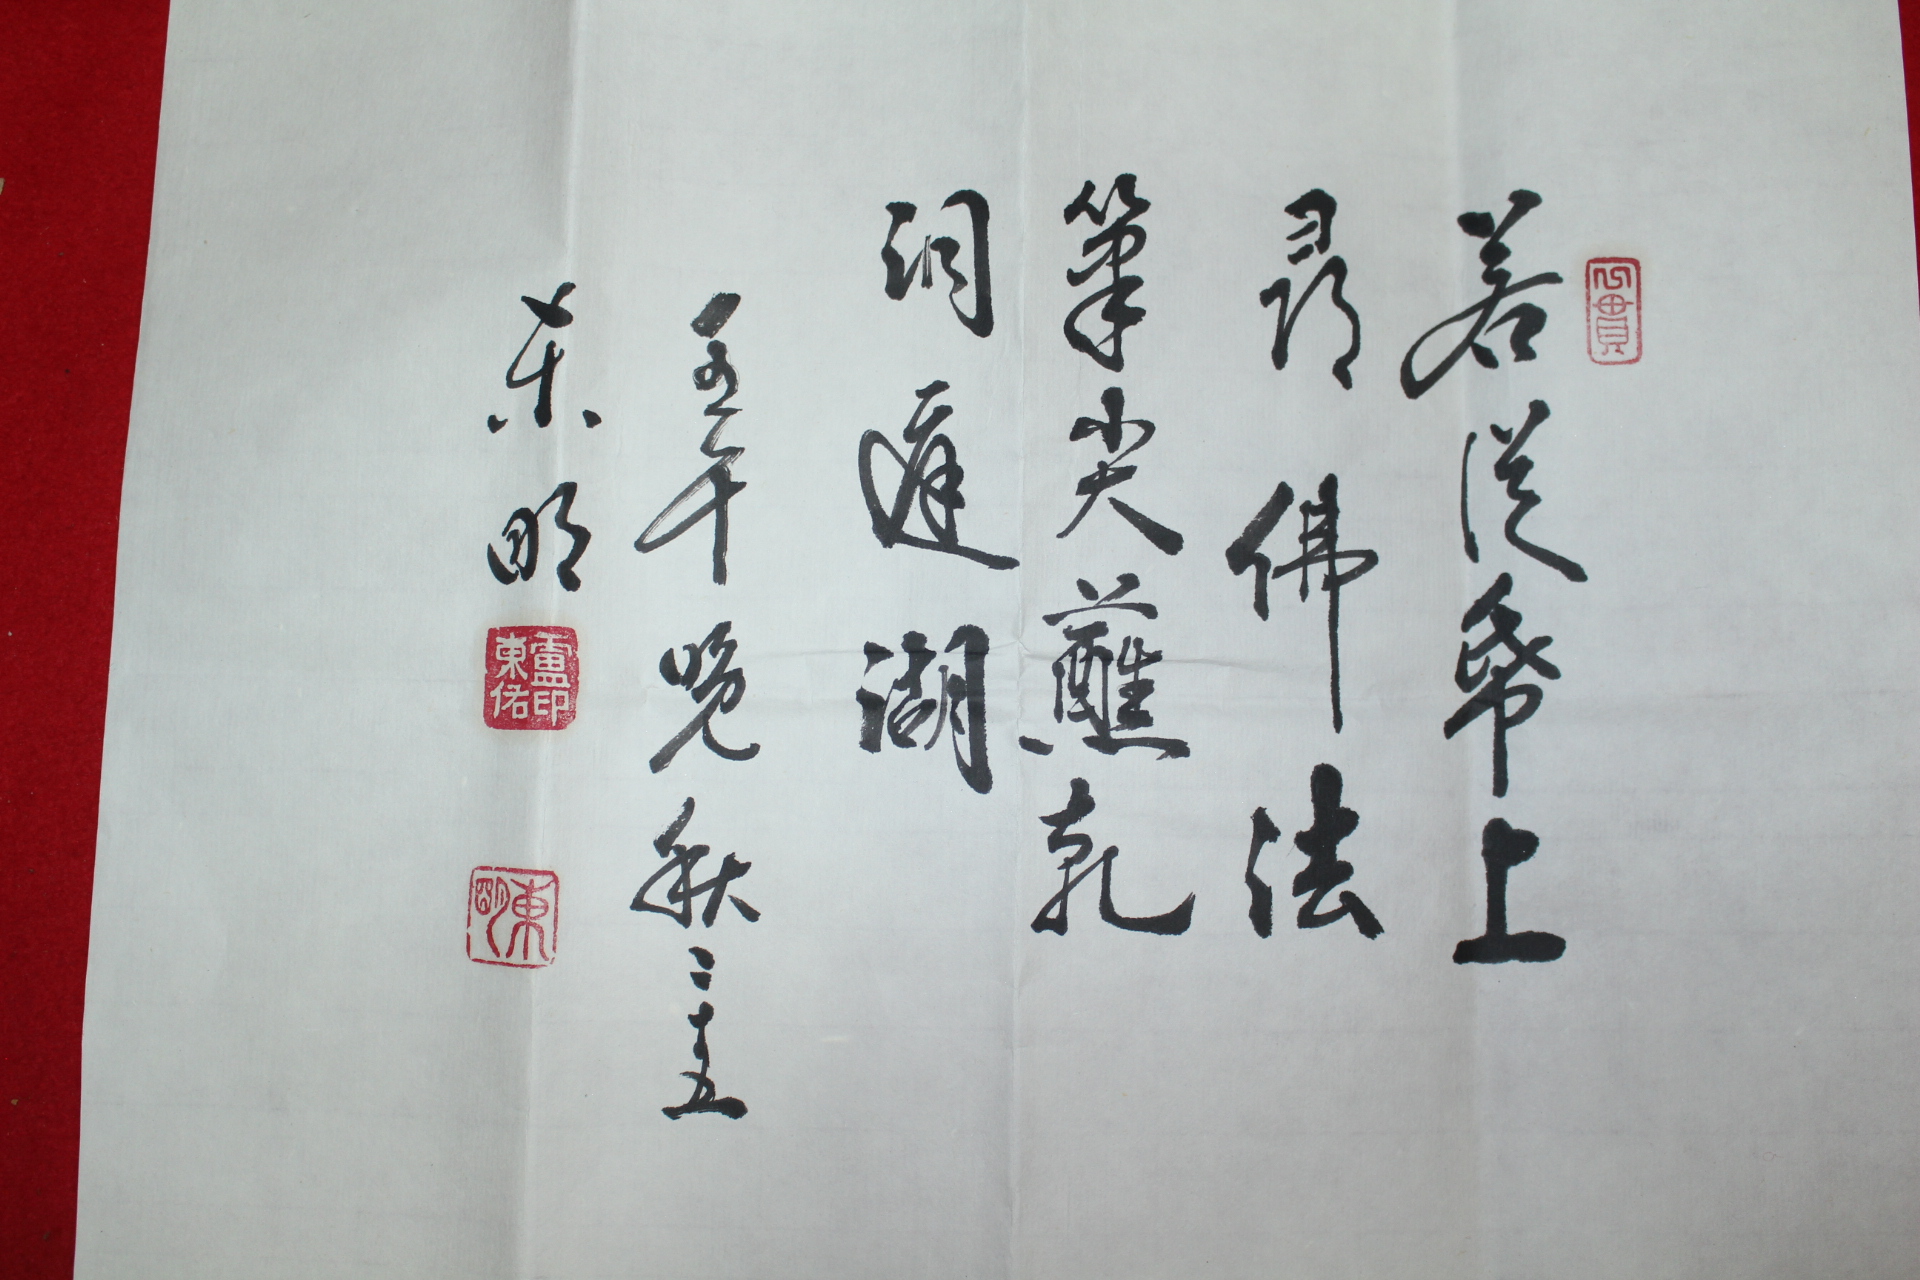 心貫
若從帋上
尋佛法
筆尖蘸乾
洞庭湖
壬午晚秋二十五
東明
盧印東佑
東明